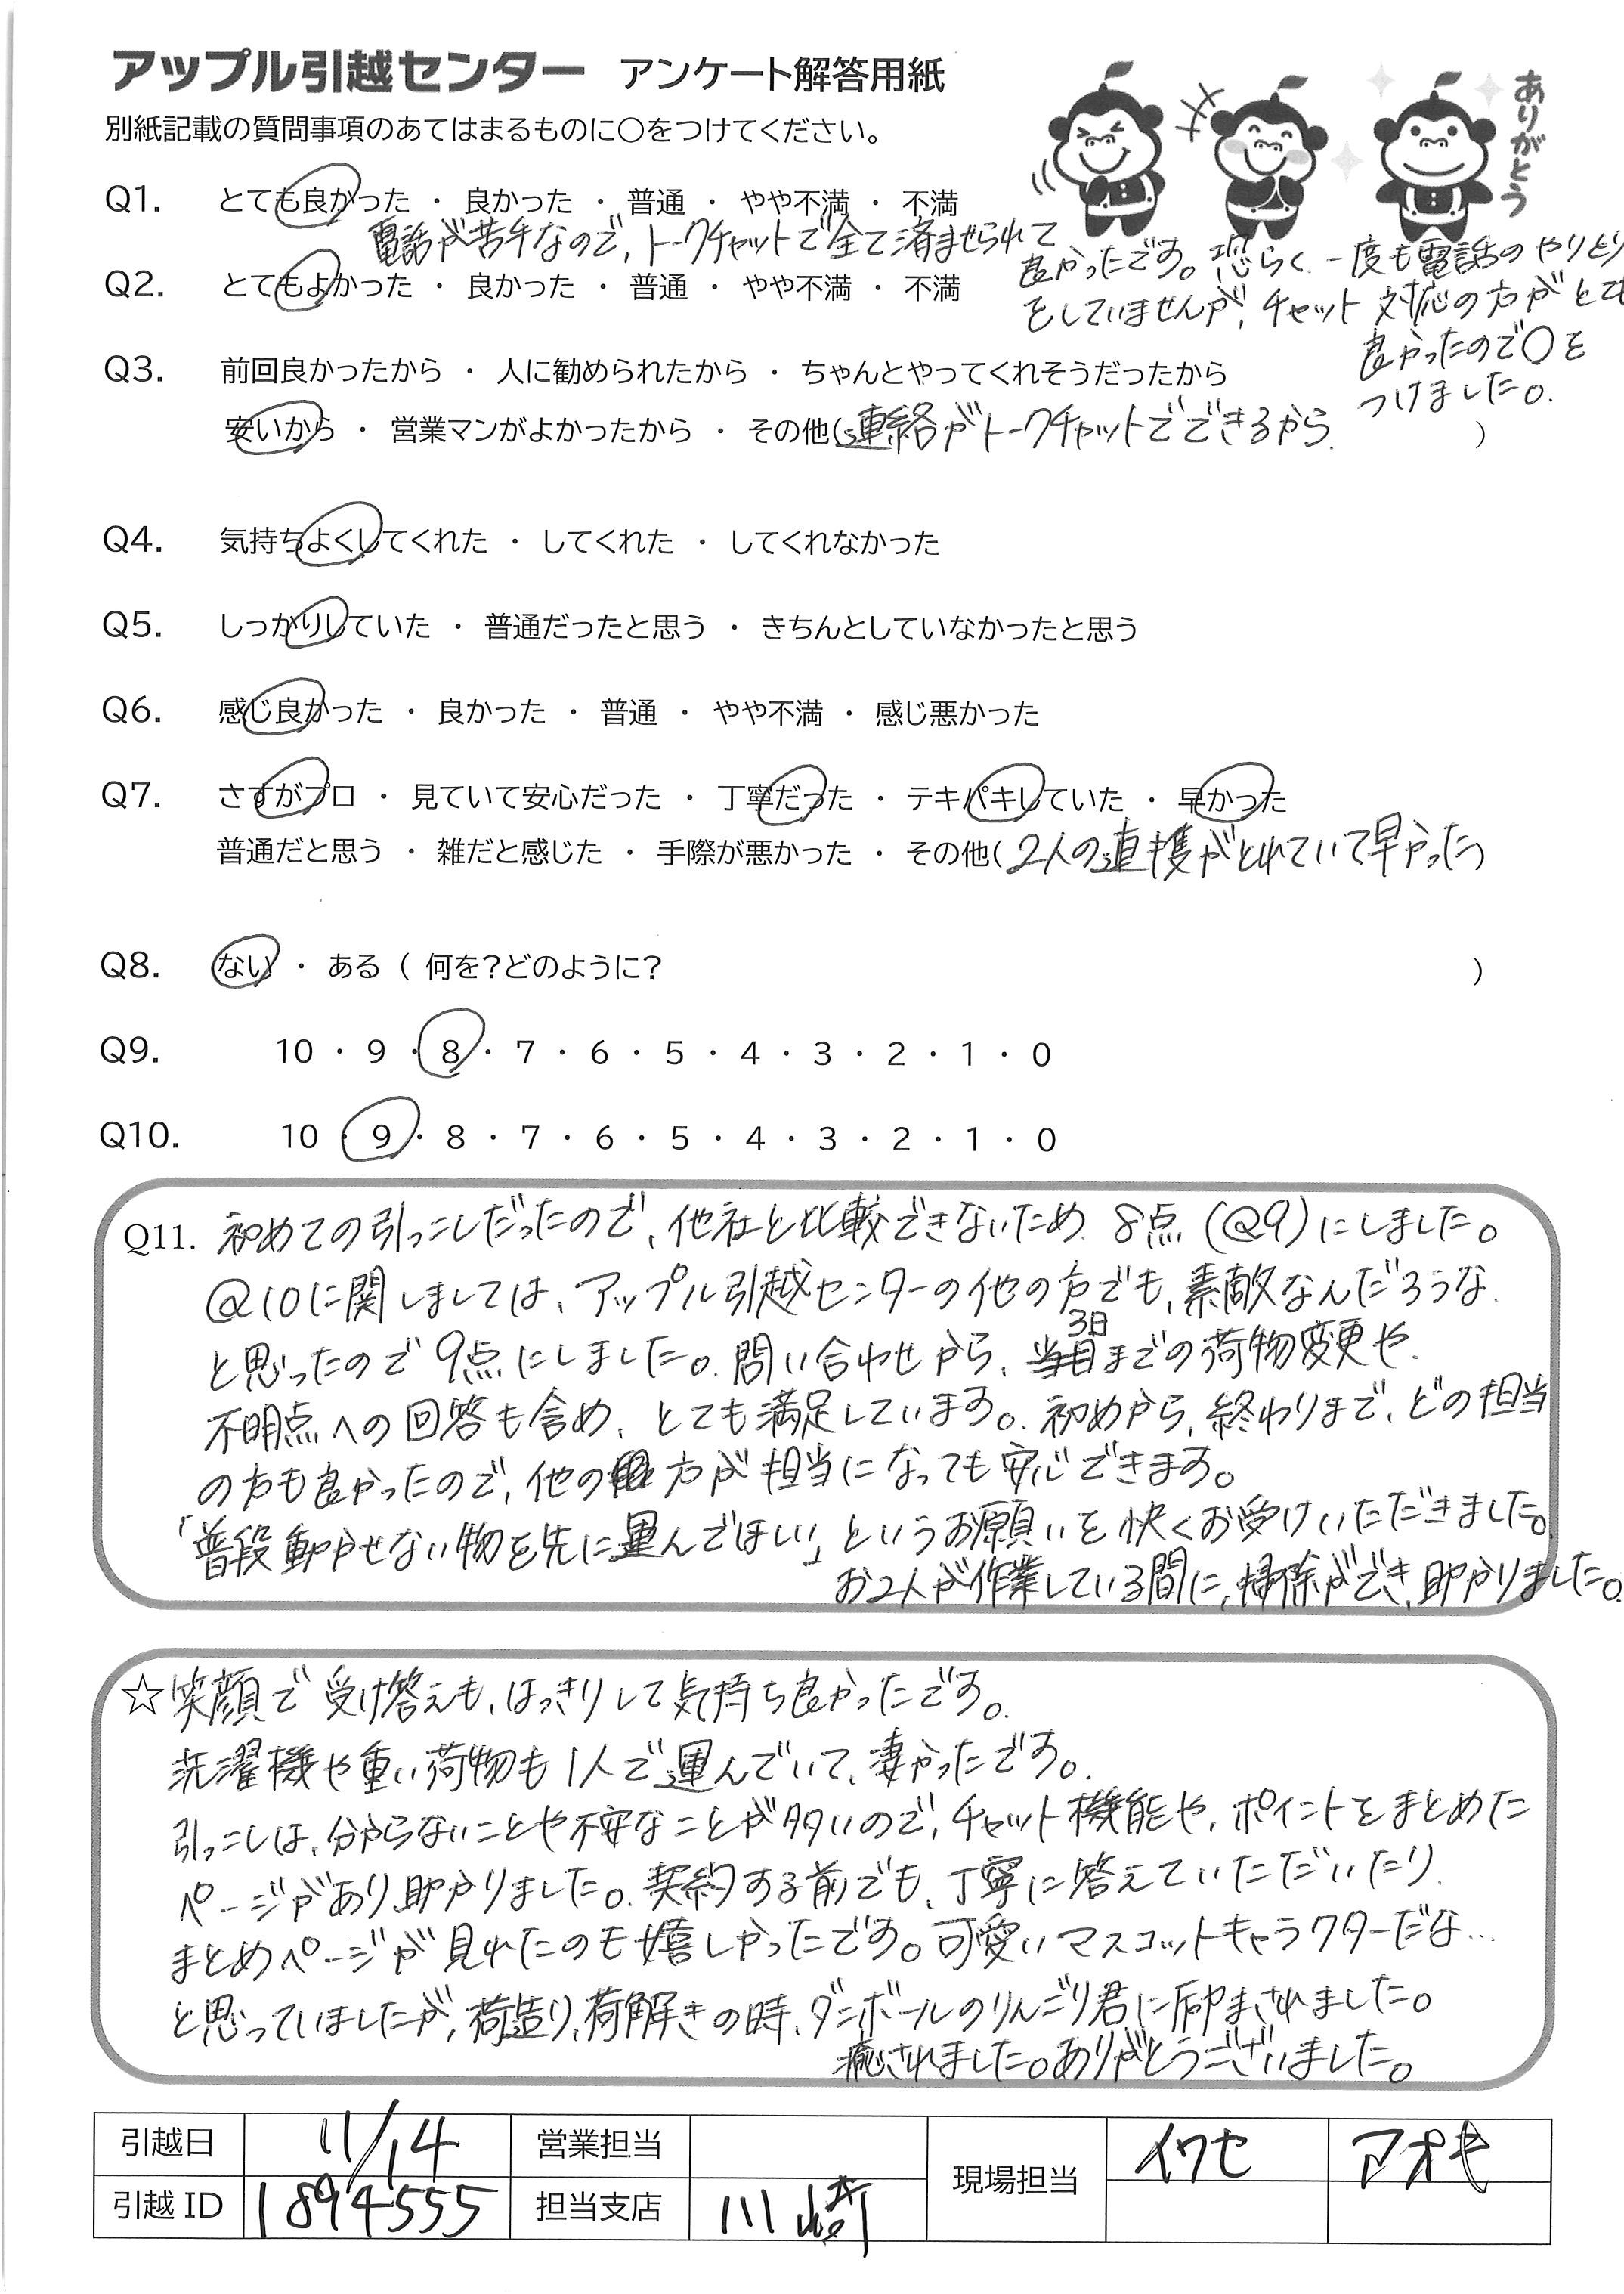 アップル引越センター アンケート解答用紙
ありがとう
別紙記載の質問事項のあてはまるものに〇をつけてください。
Q1. とても良かった ・ 良かった ・ 普通 ・ やや不満 ・ 不満
電話が苦手なので、トークチャットで全て済ませられて
良かったです。恐らく、一度も電話のやりとり
をしていませんが、チャット対応の方がとても
良かったので〇を
つけました。
Q2. とてもよかった ・ 良かった ・ 普通 ・ やや不満 ・ 不満
Q3. 前回良かったから ・ 人に勧められたから ・ ちゃんとやってくれそうだったから
安いから ・ 営業マンがよかったから ・ その他(連絡がトークチャットでできるから )
Q4. 気持ちよくしてくれた ・ してくれた ・ してくれなかった
Q5. しっかりしていた ・ 普通だったと思う ・ きちんとしていなかったと思う
Q6. 感じ良かった ・ 良かった ・ 普通 ・ やや不満 ・ 感じ悪かった
Q7. さすがプロ ・ 見ていて安心だった ・ 丁寧だった ・ テキパキしていた ・ 早かった
普通だと思う ・ 雑だと感じた ・ 手際が悪かった ・ その他(2人の連携がとれていて早かった)
Q8. ない ・ ある ( 何を?どのように? )
Q9. 10 ・ 9 ・ 8 ・ 7 ・ 6 ・ 5 ・ 4 ・ 3 ・ 2 ・ 1 ・ 0
Q10. 10 ・ 9 ・ 8 ・ 7 ・ 6 ・ 5 ・ 4 ・ 3 ・ 2 ・ 1 ・ 0
Q11. 初めての引っこしだったので、他社と比較できないため、8点(Q9)にしました。
Q10に関しましては、アップル引越センターの他の方でも、素敵なんだろうな、
と思ったので9点にしました。問い合わせから、3日までの荷物変更や、
不明点への回答も含め、とても満足しています。初めから、終わりまで、どの担当
の方も良かったので、他の方が担当になっても安心できます。
「普段動かせない物を先に運んでほしい」というお願いを快くお受けいただきました。
お2人が作業している間に、掃除ができ、助かりました。
☆笑顔で受け答えも、はっきりして気持ち良かったです。
洗濯機や重い荷物も1人で運んでいて、凄かったです。
引っこしは、分からないことや不安なことが多いので、チャット機能や、ポイントをまとめた
ページがあり、助かりました。契約する前でも、丁寧に答えていただいたり、
まとめページが見れたのも嬉しかったです。可愛いマスコットキャラクターだな…
と思っていましたが、荷造り、荷解きの時、ダンボールのりんごり君に励まされました。
癒されました。ありがとうございました。
引越日 11/14 営業担当 現場担当 イワセ アオキ
引越 ID 1894555 担当支店 川崎